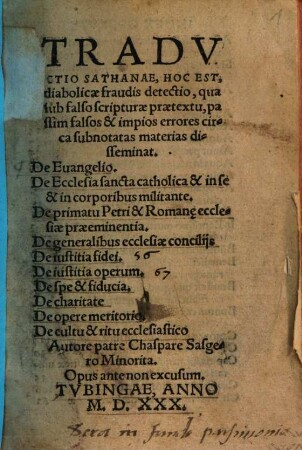 TRADV
CTIO SATHANAE, HOC EST,
diabolicæ fraudis detectio, qua
sub falso scripturæ prætextu, pa
ssim falsos & impios errores cir
ca subnotatas materias dis
seminat.
De Euangelio.
De Ecclesia sancta catholica & in se
& in corporibus militante.
De primatu Petri & Romanę eccle
siæ præeminentia.
De generalibus ecclesiæ concilijs
De iustitia fidei. 56
De iustitia operum. 67
De spe & fiducia.
De charitate
De opere meritorio.
De cultu & ritu ecclesiastico
Autore patre Chaspare Sasge
ro Minorita.
Opus ante non excusum.
TVBINGAE, ANNO
M. D. XXX.
in